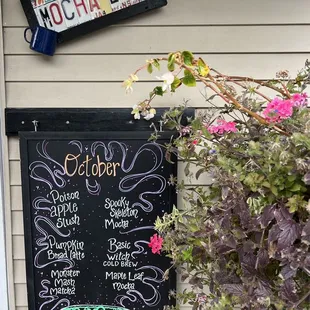 MOCHA
October
Poison
apple
Slush
Spooky
Skeleton
Mocha
Pumpkin
Bread Latte
Basic
witch
COLD BREW
Monster
Mash
Matcha
Maple Leaf
Mocha